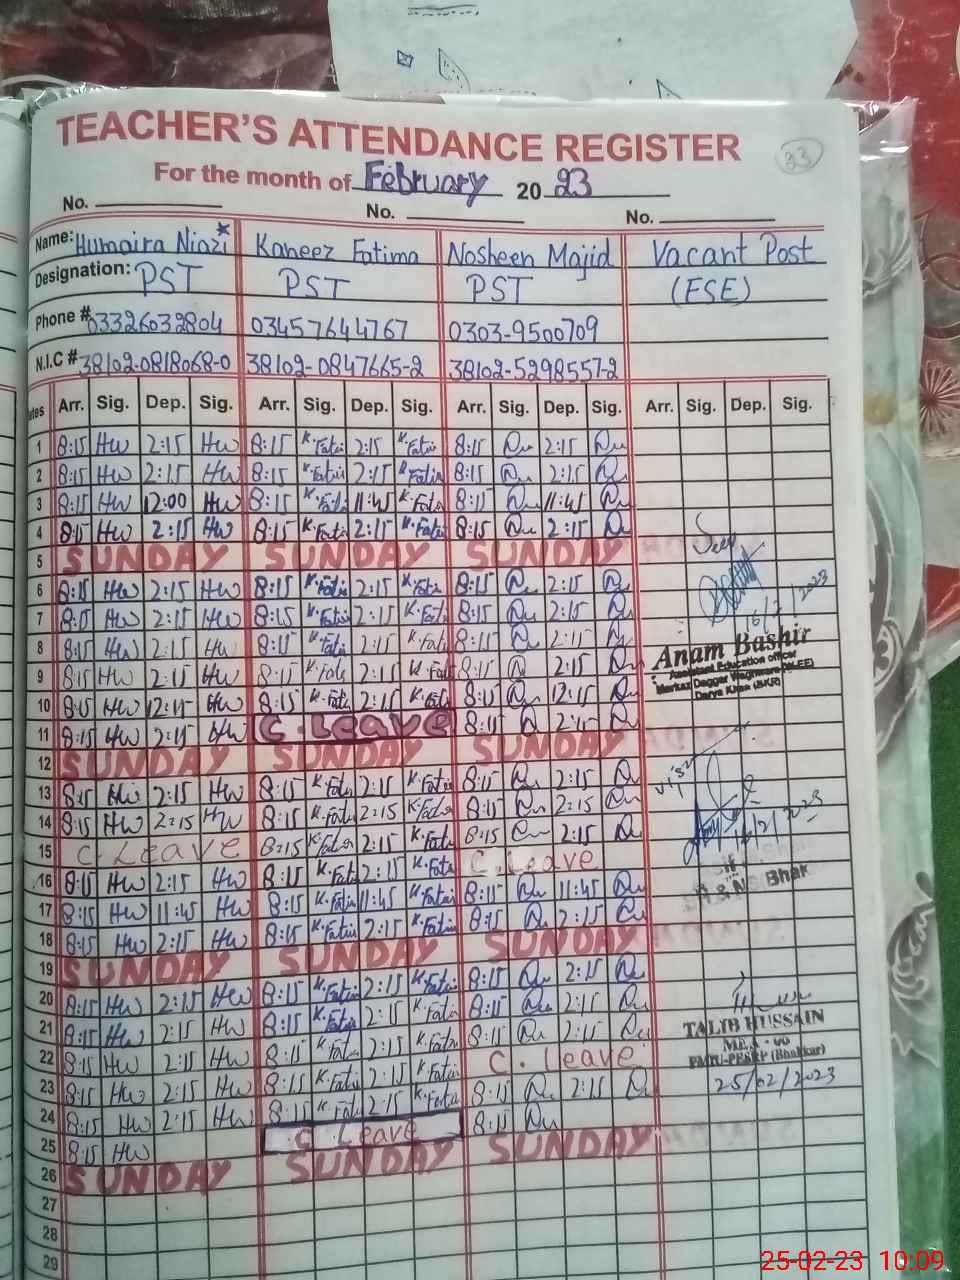 TEACHER'S ATTENDANCE REGISTER
33
For the month of February 2023
No. No. No.
Name: Humaira Niazi Kaneez Fatima Nosheen Majid Vacant Post
Designation: PST PST PST (ESE)
Phone # 03326032804 03457644767 0303-9500709
N.I.C # 38102-0818068-0 38102-0847665-2 38102-5298557-2
Dates Arr. Sig. Dep. Sig. Arr. Sig. Dep. Sig. Arr. Sig. Dep. Sig. Arr. Sig. Dep. Sig.
1 8:15 HW 2:15 HW 8:15 K.Fatima 2:15 K.Fatima 8:15 2:15
2 8:15 HW 2:15 HW 8:15 K.Fatima 2:15 K.Fatima 8:15 2:15
3 8:15 HW 12:00 HW 8:15 K.Fatima 11:45 K.Fatima 8:15 11:45
4 8:15 HW 2:15 HW 8:15 K.Fatima 2:15 K.Fatima 8:15 2:15
5 SUNDAY SUNDAY SUNDAY
6 8:15 HW 2:15 HW 8:15 K.Fatima 2:15 K.Fatima 8:15 2:15
7 8:15 HW 2:15 HW 8:15 K.Fatima 2:15 K.Fatima 8:15 2:15
8 8:15 HW 2:15 HW 8:15 K.Fatima 2:15 K.Fatima 8:15 2:15
9 8:15 HW 2:15 HW 8:15 K.Fatima 2:15 K.Fatima 8:15 2:15
10 8:15 HW 12:15 HW 8:15 K.Fatima 2:15 K.Fatima 8:15 12:15
11 8:15 HW 2:15 HW C.Leave 8:15 2:15
12 SUNDAY SUNDAY SUNDAY
13 8:15 HW 2:15 HW 8:15 K.Fatima 2:15 K.Fatima 8:15 2:15
14 8:15 HW 2:15 HW 8:15 K.Fatima 2:15 K.Fatima 8:15 2:15
15 C.Leave 8:15 K.Fatima 2:15 K.Fatima 8:15 2:15
16 8:15 HW 2:15 HW 8:15 K.Fatima 2:15 K.Fatima C.Leave
17 8:15 HW 11:45 HW 8:15 K.Fatima 11:45 K.Fatima 8:15 11:45
18 8:15 HW 2:15 HW 8:15 K.Fatima 2:15 K.Fatima 8:15 2:15
19 SUNDAY SUNDAY SUNDAY
20 8:15 HW 2:15 HW 8:15 K.Fatima 2:15 K.Fatima 8:15 2:15
21 8:15 HW 2:15 HW 8:15 K.Fatima 2:15 K.Fatima 8:15 2:15
22 8:15 HW 2:15 HW 8:15 K.Fatima 2:15 K.Fatima 8:15 2:15
23 8:15 HW 2:15 HW 8:15 K.Fatima 2:15 K.Fatima C.Leave
24 8:15 HW 2:15 HW 8:15 K.Fatima 2:15 K.Fatima 8:15 2:15
25 8:15 HW C Leave 8:15
26 SUNDAY SUNDAY SUNDAY
27
28
29
Anam Bashir
Assistant Education officer
Darya Khan (BKR)
TALIB HUSSAIN
25/02/2023
25-02-23 10:09